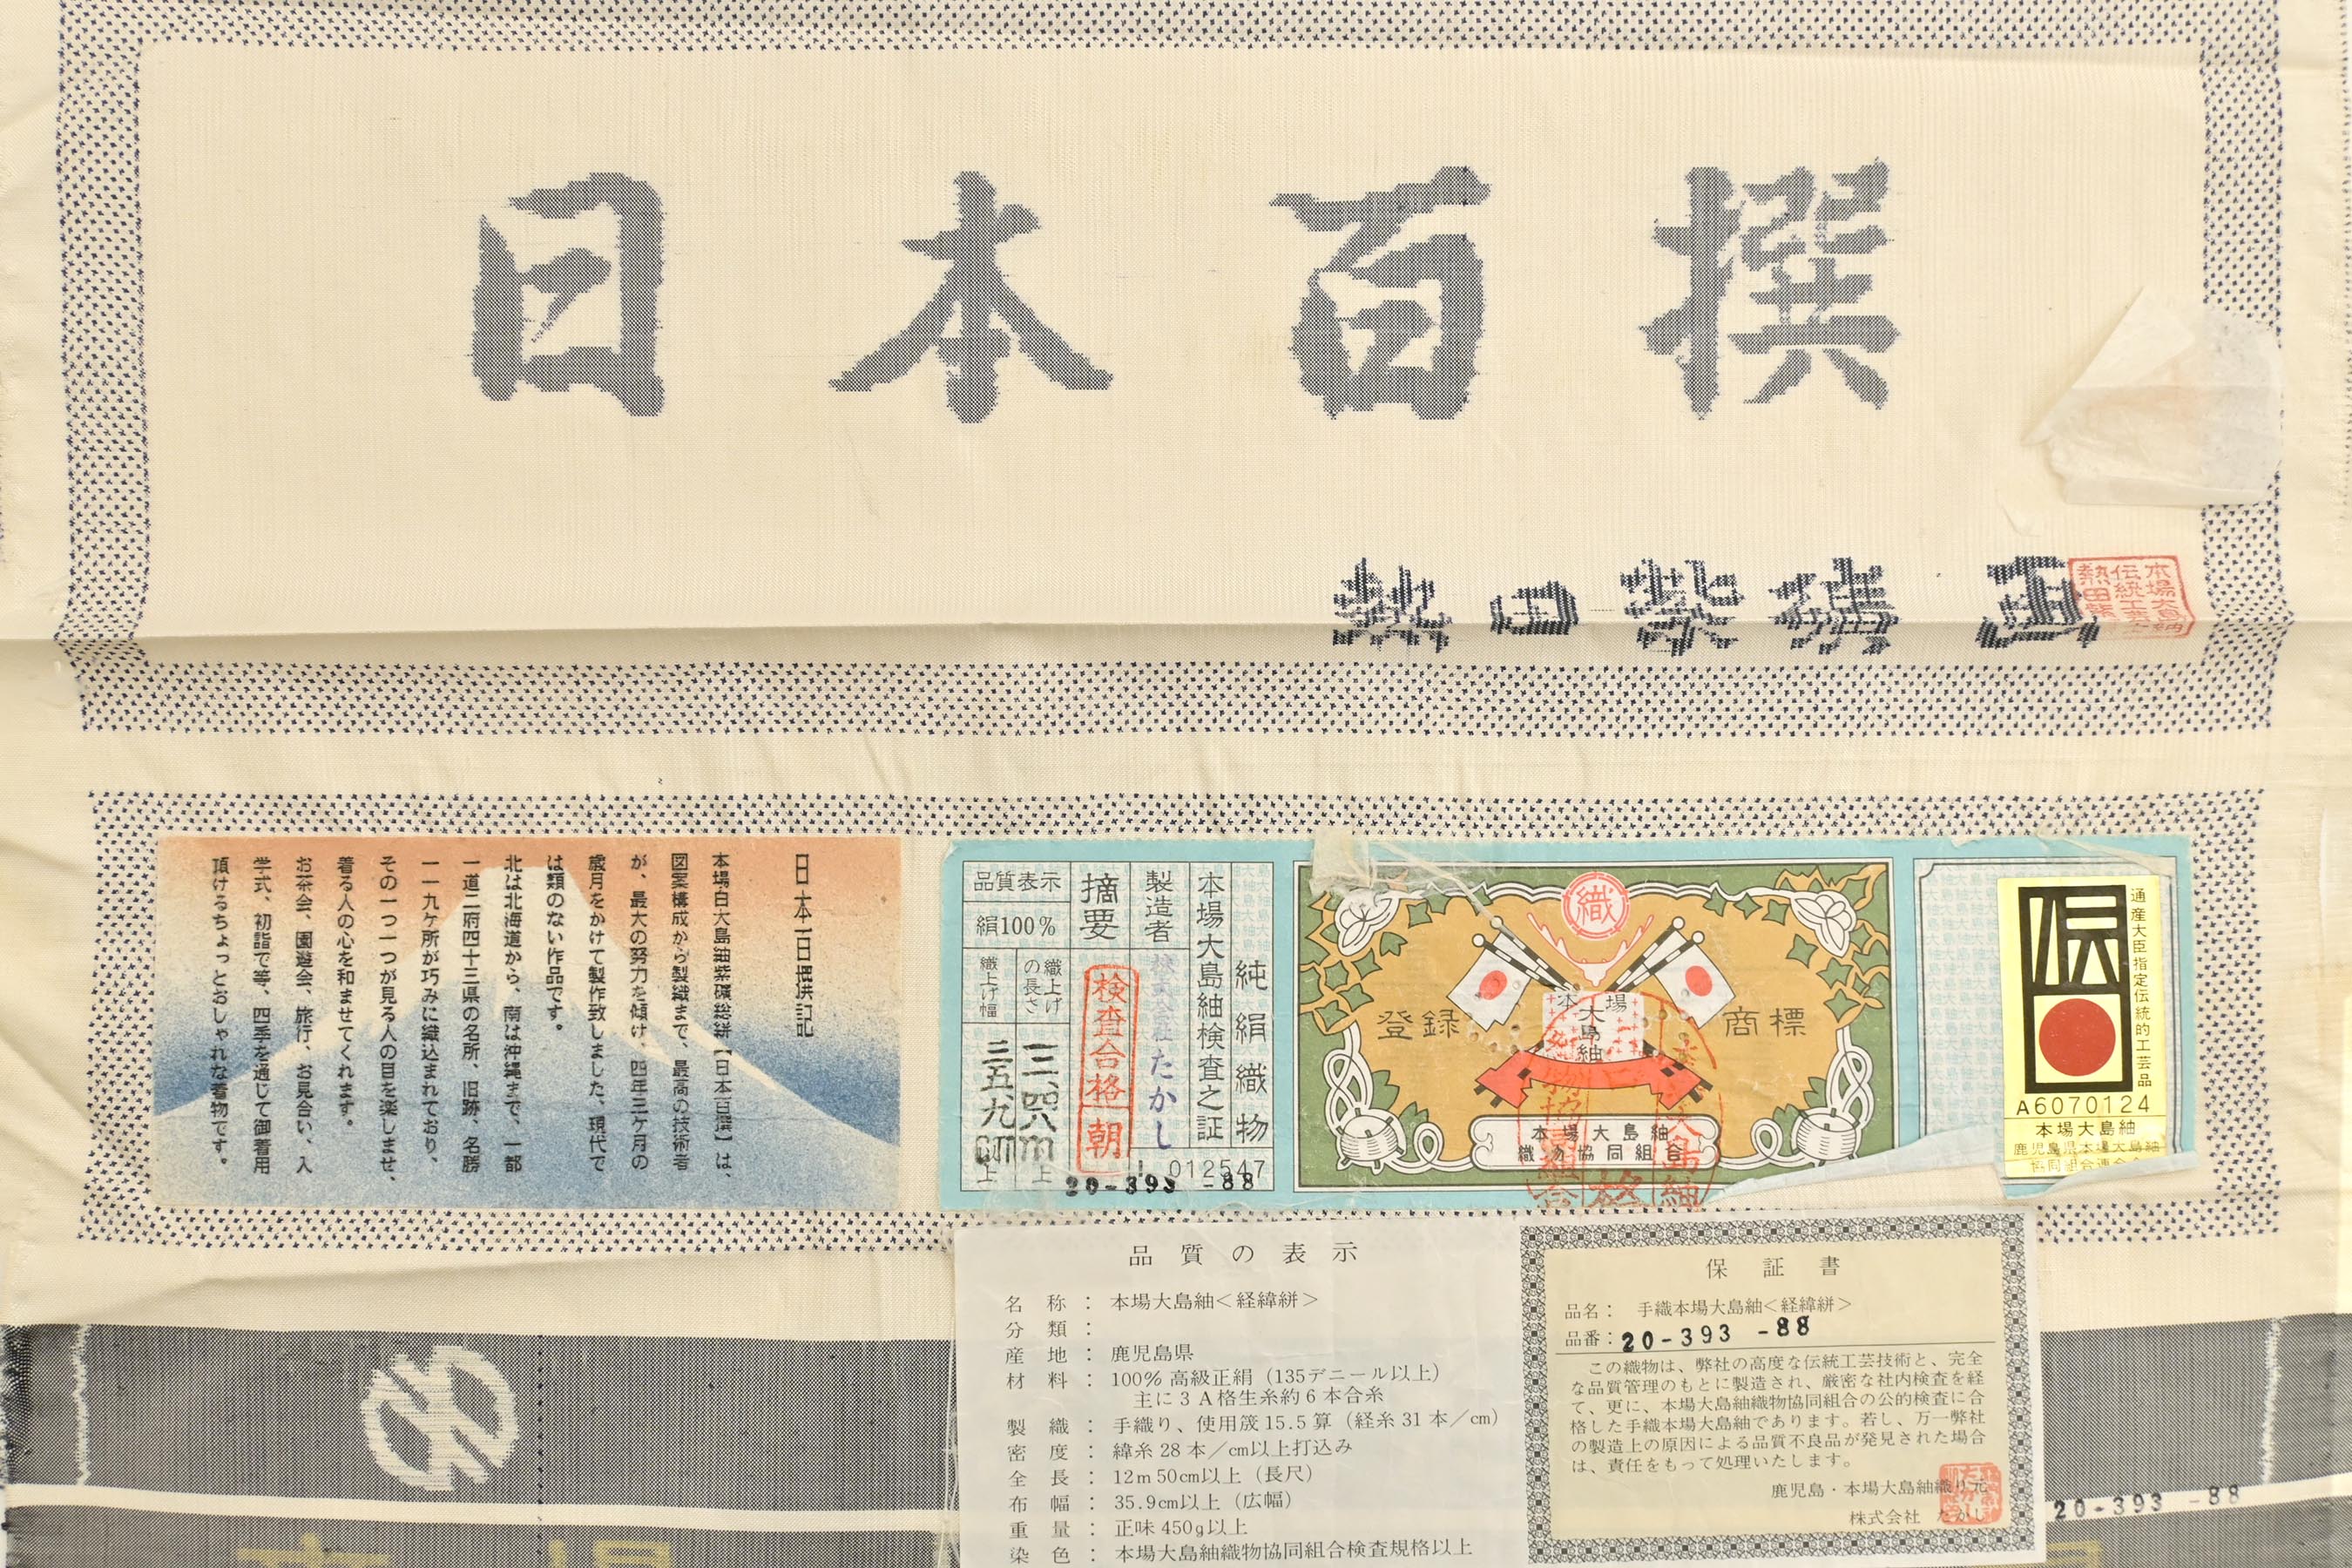 日本百撰
本場大島紬
伝統工芸
日本百撰記
本場白大島紬紫磧総絣【日本百撰】は、
図案構成から製織まで、最高の技術者
が、最大の努力を傾け、四年三ケ月の
歳月をかけて製作致しました、現代で
は類のない作品です。
北は北海道から、南は沖縄まで、一都
一道二府四十三県の名所、旧跡、名勝
一一九ケ所が巧みに織込まれており、
その一つ一つが見る人の目を楽しませ、
着る人の心を和ませてくれます。
お茶会、園遊会、旅行、お見合い、入
学式、初詣で等、四季を通じて御着用
頂けるちょっとおしゃれな着物です。
純絹織物
本場大島紬検査之証
012547
製造者
たかし
摘要
検査合格
朝
品質表示
絹100%
織上げの長さ
織上げ幅
三五九
上
上
20-393 -88
織
登録
商標
本場
大島紬
本場大島紬
織物協同組合
伝
通産大臣指定伝統的工芸品
A6070124
本場大島紬
鹿児島県本場大島紬
協同組合連合会
品質の表示
名称：本場大島紬＜経緯絣＞
分類：
産地：鹿児島県
材料：100% 高級正絹（135デニール以上）
主に3A格生糸約6本合糸
製織：手織り、使用筬15.5算（経糸31本／cm）
密度：緯糸28本／cm以上打込み
全長：12m50cm以上（長尺）
布幅：35.9cm以上（広幅）
重量：正味450g以上
染色：本場大島紬織物協同組合検査規格以上
保証書
品名：手織本場大島紬＜経緯絣＞
品番：20-393 -88
この織物は、弊社の高度な伝統工芸技術と、完全
な品質管理のもとに製造され、厳密な社内検査を経
て、更に、本場大島紬織物協同組合の公的検査に合
格した手織本場大島紬であります。若し、万一弊社
の製造上の原因による品質不良品が発見された場合
は、責任をもって処理いたします。
鹿児島・本場大島紬織り元
株式会社 たかし
20-393 -88